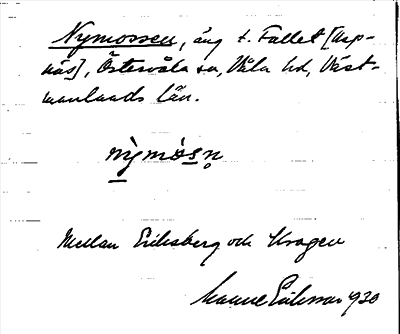 Nymossen, äng t. Fallet [Upp-
näs], Östervåla sn, Våla hd, Väst-
manlands län.
nỳmòsn̥
Mellan Eriksberg och Kragen
Manne Eriksson 1930